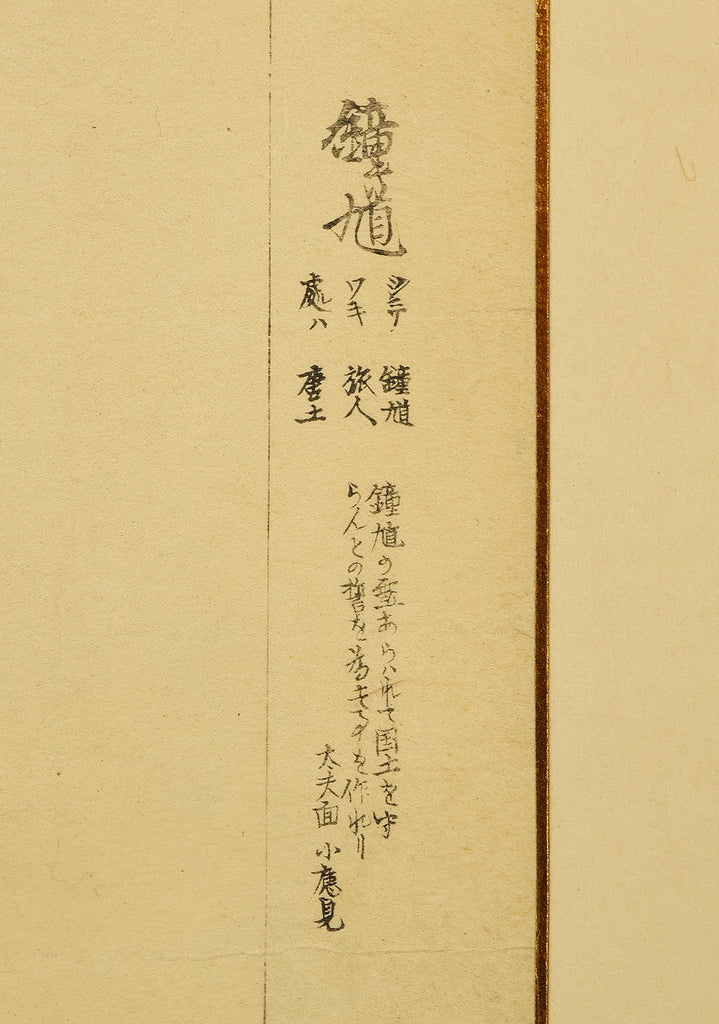 鐘馗
シテ 鐘馗
ワキ 旅人
處ハ 唐土
鐘馗の霊あらハれて国土を守
らんとの誓を為す事を作れり
大夫面 小癋見